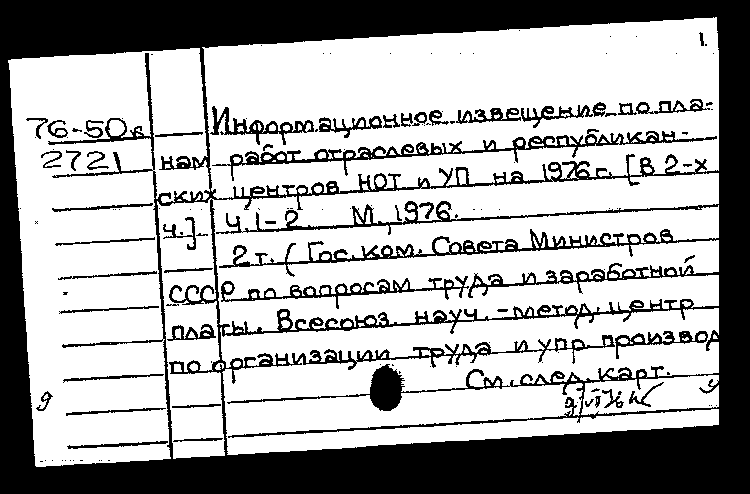 1.
76-50в Информационное извещение по пла-
2721 нам работ отраслевых и республикан-
ских центров НОТ и УП на 1976 г. [В 2-х
ч.] Ч. 1-2. М., 1976.
2 т. (Гос. ком. Совета Министров
СССР по вопросам труда и заработной
платы. Всесоюз. науч.-метод. центр
по организации труда и упр. производ
См. след. карт.
9